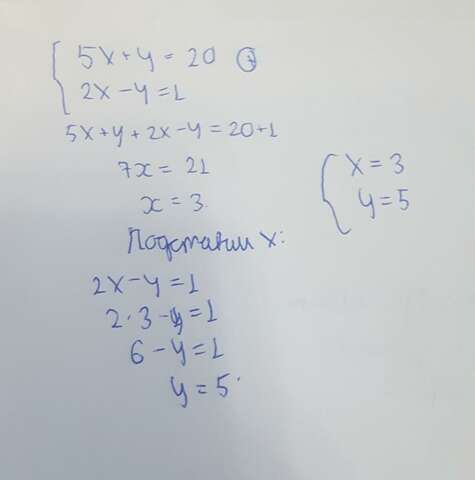 5x+y=20 (+)
2x-y=1
5x+y+2x-y=20+1
7x=21
x=3
Подставим x:
2x-y=1
2·3-y=1
6-y=1
y=5.
x=3
y=5